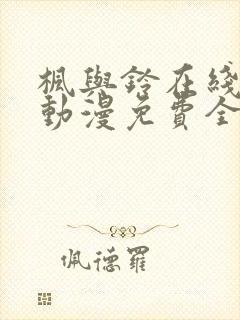 楓與鈴在綫
動漫免費全
佩德羅